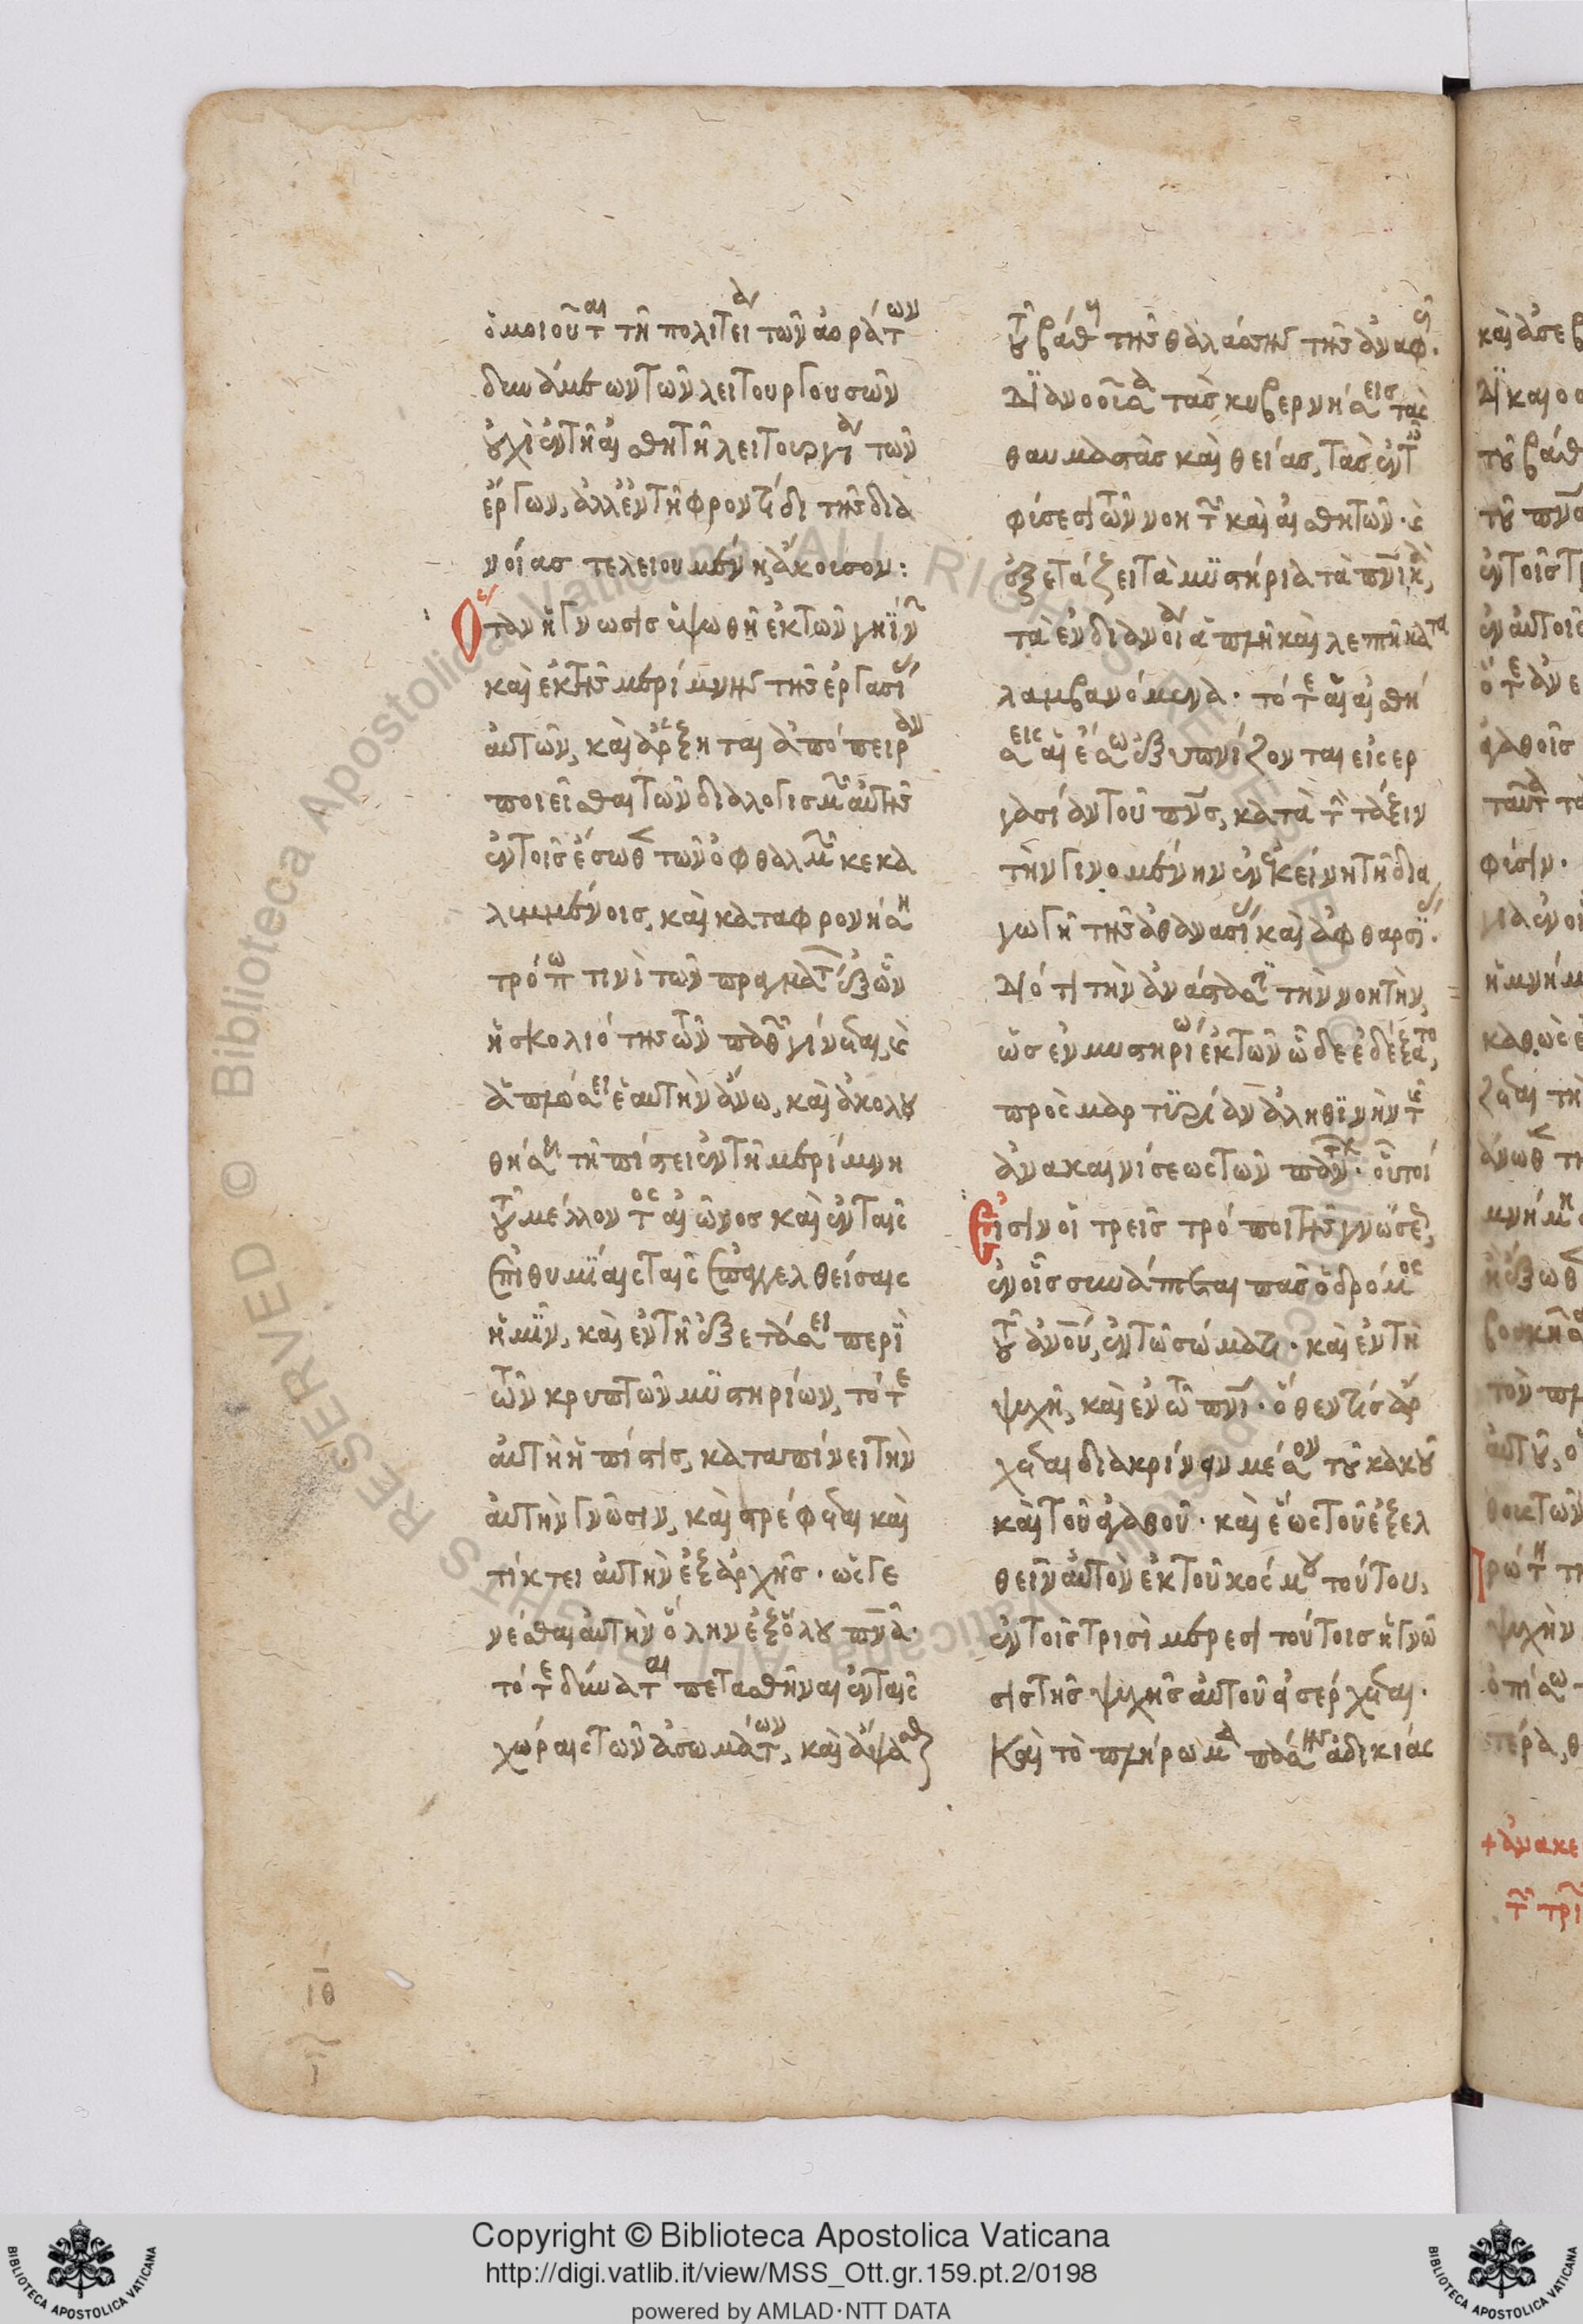 ὁμοιοῦται τῆ πολιτεία τῶν ἀοράτων
δυνάμεων τῶν λειτουργουσῶν
οὐχὶ ἐν τῆ αἰσθητῆ λειτουργία τῶν
ἔργων, ἀλλ' ἐν τῆ φροντίδι τῆς δια
νοίας τελειουμένη, ἄκουσον:
Ὅταν ἡ γνῶσις ὑψωθῆ ἐκ τῶν γηΐνων
καὶ ἐκ τῆς μερίμνης τῆς ἐργασίας
αὐτῶν, καὶ ἄρξηται ἀπόπειραν
ποιεῖσθαι τῶν διαλογισμῶν αὐτῆς
ἐν τοῖς ἔσωθεν τῶν ὀφθαλμῶν κεκα
λυμμένοις, καὶ καταφρονήση
τρόπω τινὶ τῶν πραγμάτων ἐξ ὧν
ἡ σκολιότης τῶν παθῶν γίνεται, καὶ
ἁπλώσει ἑαυτὴν ἄνω, καὶ ἀκολου
θήσει τῆ πίστει ἐν τῆ μερίμνη
τοῦ μέλλοντος αἰῶνος καὶ ἐν ταῖς
ἐπιθυμίαις ταῖς ἐπαγγελθείσαις
ἡμῖν, καὶ ἐν τῆ ἐξετάσει περὶ
τῶν κρυπτῶν μυστηρίων, τότε
αὐτὴ ἡ πίστις, καταπίνει τὴν
αὐτὴν γνῶσιν, καὶ στρέφεται καὶ
τίκτει αὐτὴν ἐξ ἀρχῆς· ὥστε
νέσθαι αὐτὴν ὅλην ἐξ ὅλου πνα·
τότε δύναται πετασθῆναι ἐν ταῖς
χώραις τῶν ἀσωμάτων, καὶ ἅψασθαι
τοῦ βάθους τῆς θαλάσσης τῆς ἀναφοῦς·
διανοοῖσα τὰς κυβερνήσεις τὰς
θαυμαστὰς καὶ θείας, τὰς ἐν ταῖς
φύσεσι τῶν νοητῶν καὶ αἰσθητῶν· καὶ
ἐξετάζει τὰ μυστήρια τὰ πνικὰ,
τὰ ἐν διανοία ἁπλῆ καὶ λεπτῆ κατα
λαμβανόμενα· τότε αἱ αἰσθή
σεις αἱ ἔσω ἐξυπνίζονται εἰς ἐρ
γασίαν τοῦ πνς, κατὰ τὴν τάξιν
τὴν γινομένην ἐν ἐκείνη τῆ δια
γωγῆ τῆς ἀθανασίας καὶ ἀφθαρσίας·
διότι τὴν ἀνάστασιν τὴν νοητὴν,
ὡς ἐν μυστηρίω ἐκ τῶν ὧδε ἐδέξατο,
πρὸς μαρτυρίαν ἀληθινὴν τῆς
ἀνακαινίσεως τῶν πάντων· οὗτοί
Εἰσιν οἱ τρεῖς τρόποι τῆς γνώσεως,
ἐν οἷς συνάπτεται πᾶς ὁ δρόμος
τοῦ ἀνου, ἐν τῶ σώματι· καὶ ἐν τῆ
ψυχῆ, καὶ ἐν τῶ πνι· ὅθεν τίς ἄρ
χεται διακρίνειν μέσον τοῦ κακοῦ
καὶ τοῦ ἀγαθοῦ· καὶ ἕως τοῦ ἐξελ
θεῖν αὐτὸν ἐκ τοῦ κόσμου τούτου,
ἐν τοῖς τρισὶ μέρεσι τούτοις ἡ γνῶ
σις τῆς ψυχῆς αὐτοῦ εἰσέρχεται·
Καὶ τὸ πλήρωμα πάσης ἀδικίας
ιθ
Copyright © Biblioteca Apostolica Vaticana
http://digi.vatlib.it/view/MSS_Ott.gr.159.pt.2/0198
powered by AMLAD·NTT DATA